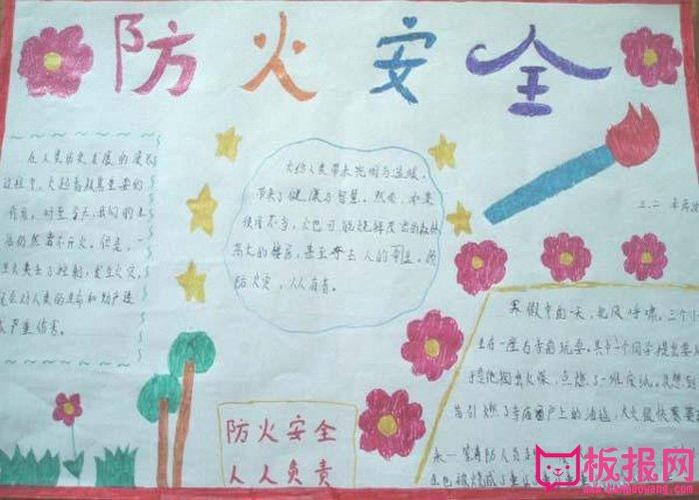 防火安全
在人类历史发展的漫
过程中，火起着极其重要的
作用，时至今天，我们的生
活仍然离不开火。但是，一
旦火失去了控制，发生火灾，
就会对人类的生命和财产造
成严重伤害。
火给人类带来光明与温暖，
带来了健康与智慧。然而，如果
使用不当，火也可能烧掉茂密的森林
高大的楼房，甚至夺去人的
防火灾，人人有责。
三、二
寒假中的一天，北风呼啸，三个小
在一座古寺前玩耍。其中一个同学提出要
于是他掏出火柴，点燃了一堆废纸。没想到
引燃了寺庙窗户上的油毡，大火很快
消防人员
防火安全
人人负责
板报网
www.banbaowang.com